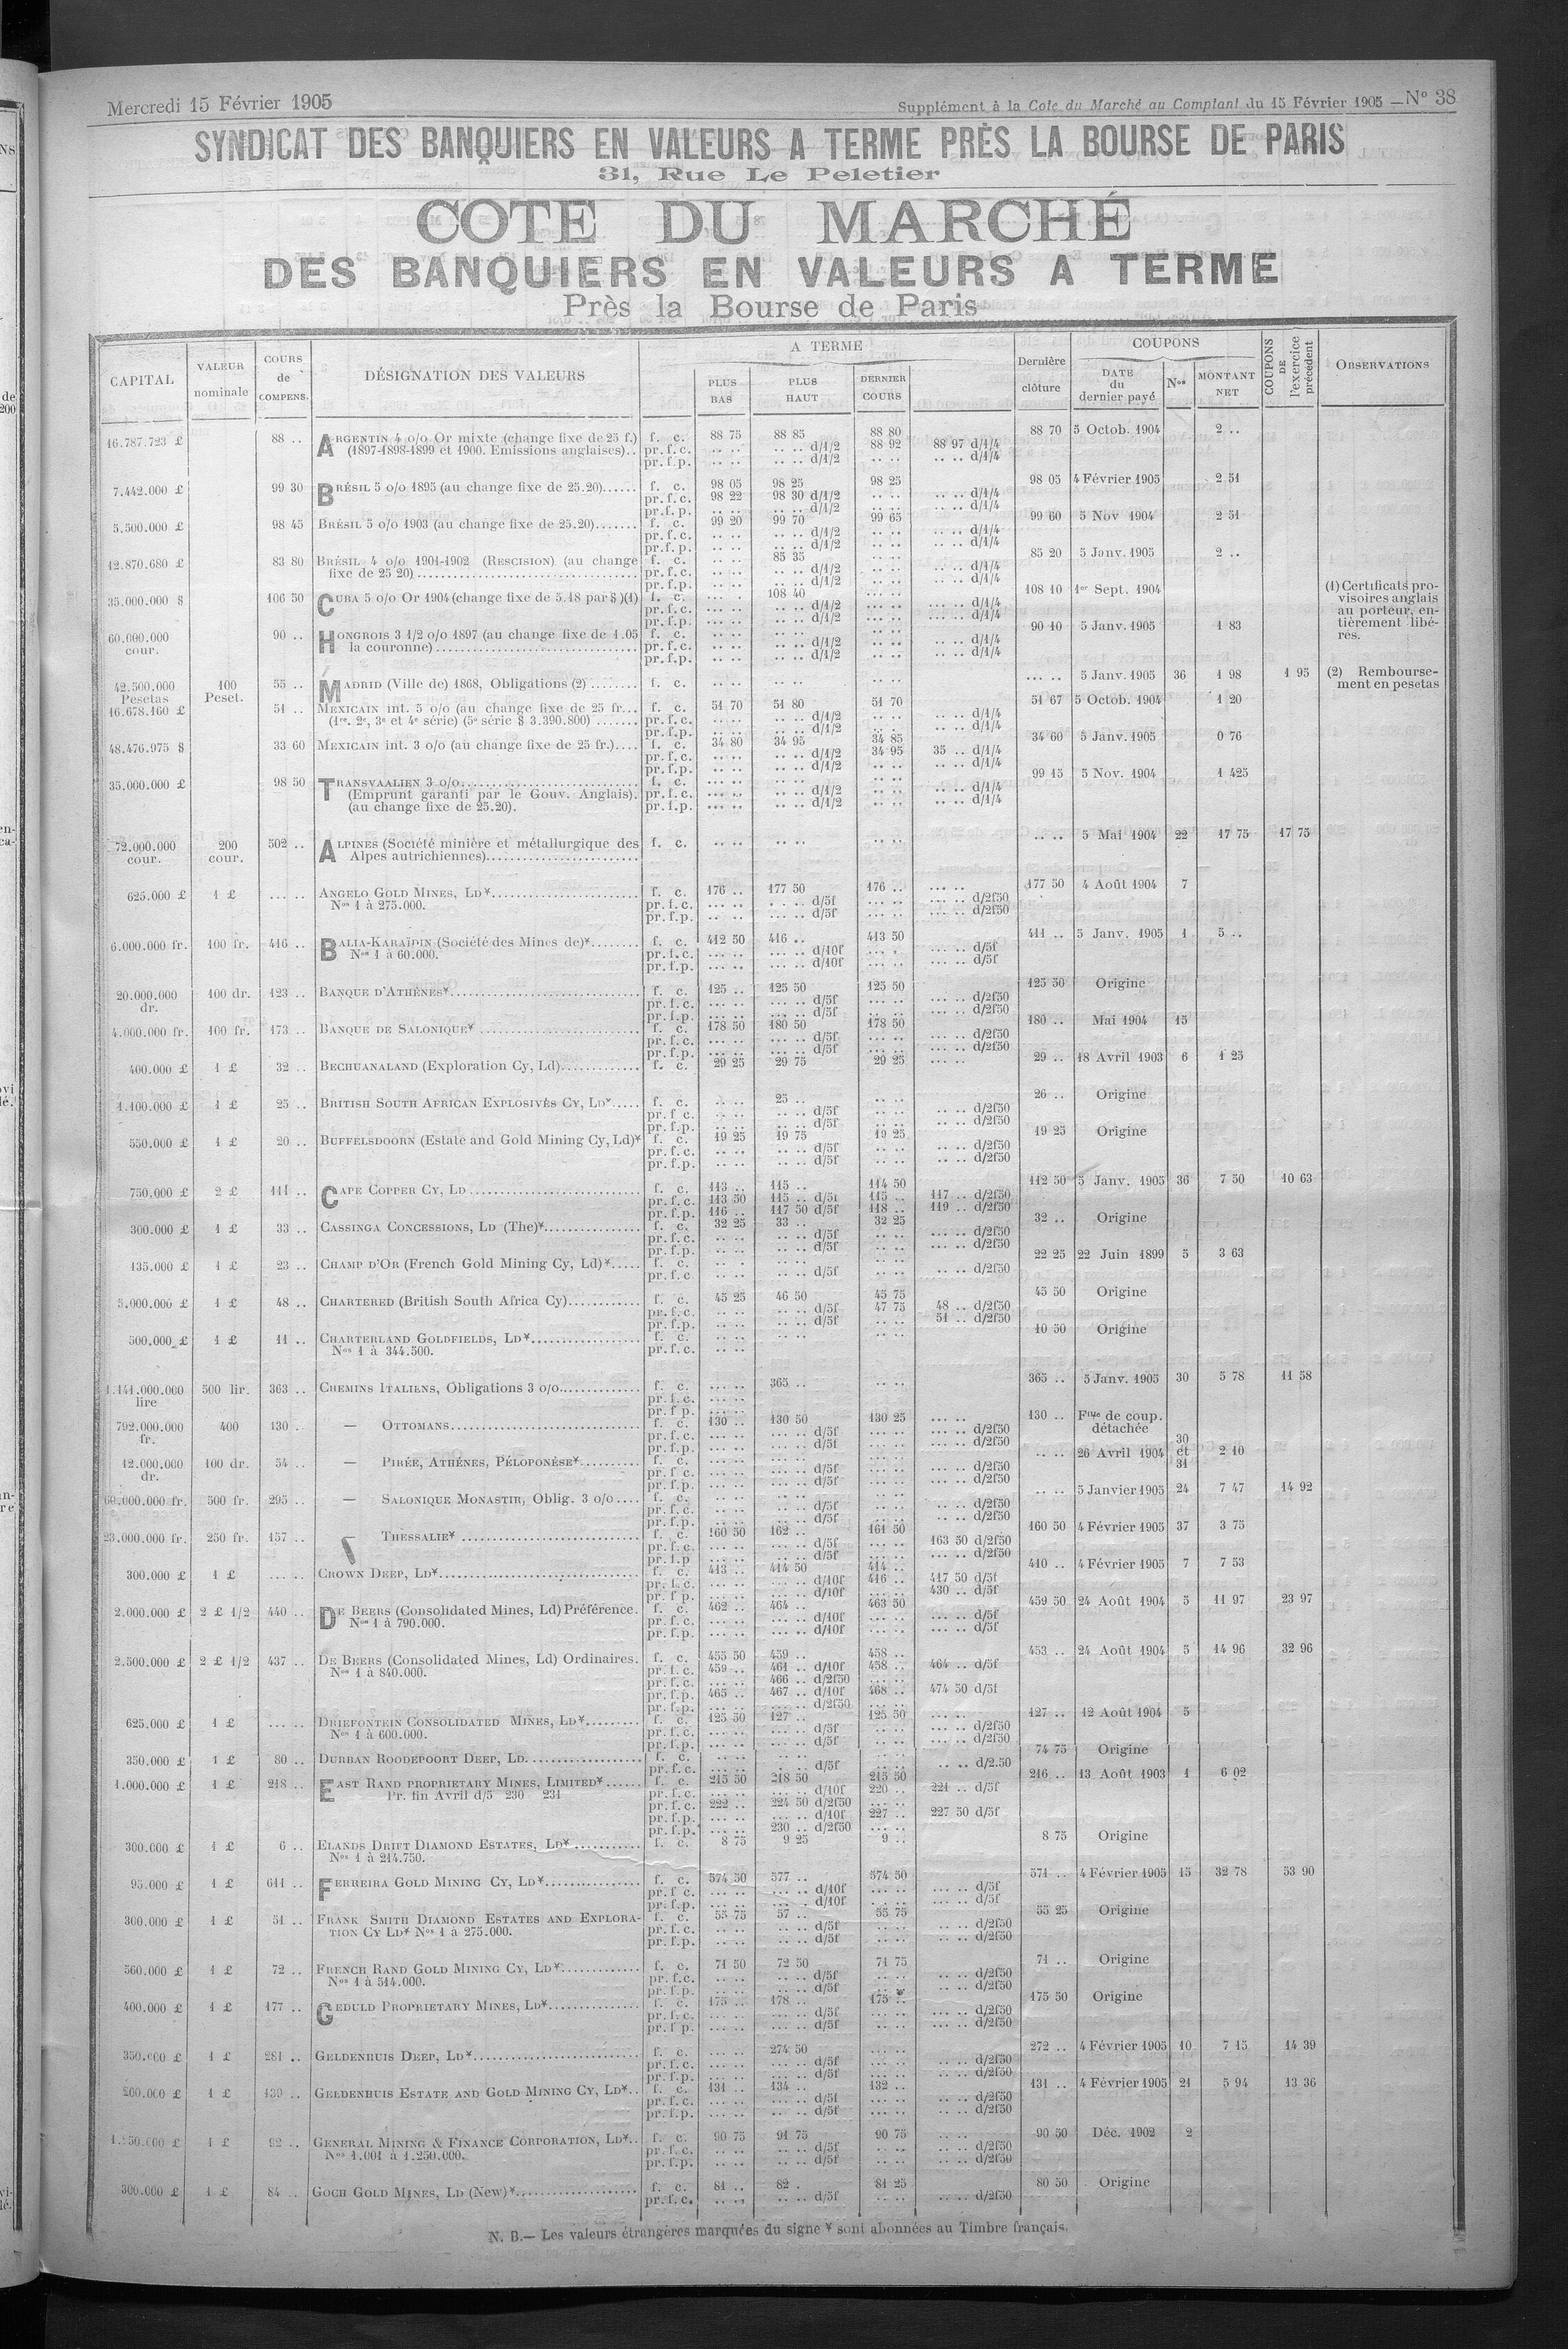 Mercredi 15 Février 1905
Supplément à la Cote du Marché au Comptant du 15 Février 1905 — No 38
SYNDICAT DES BANQUIERS EN VALEURS A TERME PRÈS LA BOURSE DE PARIS
31, Rue Le Peletier
COTE DU MARCHÉ
DES BANQUIERS EN VALEURS A TERME
Près la Bourse de Paris
CAPITAL VALEUR nominale COURS de COMPENS. DÉSIGNATION DES VALEURS A TERME PLUS BAS PLUS HAUT DERNIER COURS Dernière clôture COUPONS DATE du dernier payé Nos MONTANT NET COUPONS DE l'exercice précédent OBSERVATIONS
16.787.723 £ 88 .. ARGENTIN 4 o/o Or mixte (change fixe de 25 f.) f. c. 88 75 88 85 88 80 88 70 5 Octob. 1904 2 ..
(1897-1898-1899 et 1900. Emissions anglaises).. pr.f.c. .. .. .. .. d/1/2 88 92 88 97 d/1/4
pr.f.p. .. .. .. .. d/1/2 .. .. .. .. d/1/4
7.442.000 £ 99 30 BRÉSIL 5 o/o 1895 (au change fixe de 25.20)...... f. c. 98 05 98 25 98 25 98 05 4 Février 1905 2 51
pr.f.c. 98 22 98 30 d/1/2 .. .. .. .. d/1/4
pr.f.p. .. .. .. .. d/1/2 .. .. .. .. d/1/4
5.500.000 £ 98 45 BRÉSIL 5 o/o 1903 (au change fixe de 25.20)....... f. c. 99 20 99 70 99 65 99 60 5 Nov 1904 2 51
pr.f.c. .. .. .. .. d/1/2 .. .. .. .. d/1/4
pr.f.p. .. .. .. .. d/1/2 .. .. .. .. d/1/4
12.870.680 £ 83 80 BRÉSIL 4 o/o 1901-1902 (RESCISION) (au change f. c. .. .. 85 35 .. .. 85 20 5 Janv. 1905 2 ..
fixe de 25 20) pr.f.c. .. .. .. .. d/1/2 .. .. .. .. d/1/4
pr.f.p. .. .. .. .. d/1/2 .. .. .. .. d/1/4
35.000.000 $ 106 50 CUBA 5 o/o Or 1904 (change fixe de 5.18 par $) (1) f. c. .. .. 108 40 .. .. 108 10 1er Sept. 1904 (1) Certificats provisoires anglais au porteur, entièrement libérés.
pr.f.c. .. .. .. .. d/1/2 .. .. .. .. d/1/4
pr.f.p. .. .. .. .. d/1/2 .. .. .. .. d/1/4
60.000.000 cour. 90 .. HONGROIS 3 1/2 o/o 1897 (au change fixe de 1.05 f. c. .. .. .. .. .. .. 90 10 5 Janv. 1905 1 83
la couronne) pr.f.c. .. .. .. .. d/1/2 .. .. .. .. d/1/4
pr.f.p. .. .. .. .. d/1/2 .. .. .. .. d/1/4
42.500.000 Pesetas 100 Peset. 55 .. MADRID (Ville de) 1868, Obligations (2) ........ f. c. .. .. .. .. .. .. .. .. 5 Janv. 1905 36 1 98 1 95 (2) Remboursement en pesetas
16.678.160 £ 51 .. MEXICAIN int. 5 o/o (au change fixe de 25 fr... f. c. 51 70 51 80 51 70 51 67 5 Octob. 1904 1 20
(1re, 2e, 3e et 4e série) (5e série $ 3.390.800) ....... pr.f.c. .. .. .. .. d/1/2 .. .. .. .. d/1/4
pr.f.p. .. .. .. .. d/1/2 .. .. .. .. d/1/4
48.476.975 $ 33 60 MEXICAIN int. 3 o/o (au change fixe de 25 fr.).... f. c. 34 80 34 95 34 85 34 60 5 Janv. 1905 0 76
pr.f.c. .. .. .. .. d/1/2 34 95 35 .. d/1/4
pr.f.p. .. .. .. .. d/1/2 .. .. .. .. d/1/4
35.000.000 £ 98 50 TRANSVAALIEN 3 o/o f. c. .. .. .. .. .. .. 99 15 5 Nov. 1904 1 425
(Emprunt garanti par le Gouv. Anglais). pr.f.c. .. .. .. .. d/1/2 .. .. .. .. d/1/4
(au change fixe de 25.20). pr.f.p. .. .. .. .. d/1/2 .. .. .. .. d/1/4
72.000.000 cour. 200 cour. 502 .. ALPINES (Société minière et métallurgique des f. c. .. .. .. .. .. .. .. .. 5 Mai 1904 22 17 75 17 75
Alpes autrichiennes)
625.000 £ 1 £ ... .. ANGELO GOLD MINES, LD¥ f. c. 176 .. 177 50 176 .. ... .. 177 50 4 Août 1904 7
Nos 1 à 275.000. pr.f.c. ... .. ... .. d/5f ... .. ... .. d/2f50
pr.f.p. ... .. ... .. d/5f ... .. ... .. d/2f50
6.000.000 fr. 100 fr. 416 .. BALIA-KARAÏDIN (Société des Mines de)¥ f. c. 412 50 416 .. 413 50 411 .. 5 Janv. 1905 1 5 ..
Nos 1 à 60.000. pr.f.c. ... .. ... .. d/10f ... .. ... .. d/5f
pr.f.p. ... .. ... .. d/10f ... .. ... .. d/5f
20.000.000 dr. 100 dr. 123 .. BANQUE D'ATHÈNES¥ f. c. 125 .. 125 50 125 50 125 50 Origine
pr.f.c. ... .. ... .. d/5f ... .. ... .. d/2f50
pr.f.p. ... .. ... .. d/5f ... .. ... .. d/2f50
4.000.000 fr. 100 fr. 173 .. BANQUE DE SALONIQUE¥ f. c. 178 50 180 50 178 50 180 .. Mai 1904 15
pr.f.c. ... .. ... .. d/5f ... .. ... .. d/2f50
pr.f.p. ... .. ... .. d/5f ... .. ... .. d/2f50
400.000 £ 1 £ 32 .. BECHUANALAND (Exploration Cy, Ld) f. c. 29 25 29 75 29 25 ... .. 29 .. 18 Avril 1903 6 1 25
1.100.000 £ 1 £ 25 .. BRITISH SOUTH AFRICAN EXPLOSIVES CY, LD¥ f. c. .. .. 25 .. .. .. 26 .. Origine
pr.f.c. .. .. .. .. d/5f .. .. .. .. d/2f50
pr.f.p. .. .. .. .. d/5f .. .. .. .. d/2f50
550.000 £ 1 £ 20 .. BUFFELSDOORN (Estate and Gold Mining Cy, Ld)¥ f. c. 19 25 19 75 19 25 19 25 Origine
pr.f.c. .. .. .. .. d/5f .. .. .. .. d/2f50
pr.f.p. .. .. .. .. d/5f .. .. .. .. d/2f50
750.000 £ 2 £ 111 .. CAPE COPPER CY, LD f. c. 113 .. 115 .. 114 50 112 50 5 Janv. 1905 36 7 50 10 63
pr.f.c. 113 50 115 .. d/5f 115 .. 117 .. d/2f50
pr.f.p. 116 .. 117 50 d/5f 118 .. 119 .. d/2f50
300.000 £ 1 £ 33 .. CASSINGA CONCESSIONS, LD (The)¥ f. c. 32 25 33 .. 32 25 32 .. Origine
pr.f.c. .. .. .. .. d/5f .. .. ... .. d/2f50
pr.f.p. .. .. .. .. d/5f .. .. ... .. d/2f50
135.000 £ 1 £ 23 .. CHAMP D'OR (French Gold Mining Cy, Ld)¥ f. c. .. .. .. .. .. .. 22 25 22 Juin 1899 5 3 63
pr.f.c .. .. .. .. d/5f .. .. .. .. d/2f50
5.000.000 £ 1 £ 48 .. CHARTERED (British South Africa Cy) f. c. 45 25 46 50 45 75 45 50 Origine
pr.f.c. .. .. .. .. d/5f 47 75 48 .. d/2f50
pr.f.p. .. .. .. .. d/5f .. .. 51 .. d/2f50
500.000 £ 1 £ 11 .. CHARTERLAND GOLDFIELDS, LD¥ f. c. .. .. .. .. .. .. 10 50 Origine
Nos 1 à 344.500. pr.f.c. .. ..
1.141.000.000 lire 500 lir. 363 .. CHEMINS ITALIENS, Obligations 3 o/o f. c. ... .. 365 .. .. .. 365 .. 5 Janv. 1905 30 5 78 11 58
pr.f.c. ... ..
pr.f.p. ... ..
792.000.000 fr. 400 130 .. — OTTOMANS f. c. 130 .. 130 50 130 25 ... .. 130 .. Flle de coup. détachée
pr.f.c. ... .. ... .. d/5f ... .. ... .. d/2f50
pr.f.p. ... .. ... .. d/5f ... .. ... .. d/2f50
12.000.000 dr. 100 dr. 54 .. — PIRÉE, ATHÈNES, PÉLOPONÈSE¥ f. c. .. .. .. .. .. .. .. .. 26 Avril 1904 30 et 31 2 10
pr.f.c .. .. .. .. d/5f .. .. ... .. d/2f50
pr.f.p. .. .. .. .. d/5f .. .. ... .. d/2f50
60.000.000 fr. 500 fr. 295 .. — SALONIQUE MONASTIR, Oblig. 3 o/o f. c. .. .. .. .. .. .. .. .. 5 Janvier 1905 24 7 47 14 92
pr.f.c. .. .. .. .. d/5f .. .. .. .. d/2f50
pr.f.p. .. .. .. .. d/5f .. .. .. .. d/2f50
23.000.000 fr. 250 fr. 157 .. — THESSALIE¥ f. c. 160 50 162 .. 161 50 160 50 4 Février 1905 37 3 75
pr.f.c. ... .. ... .. d/5f ... .. 163 50 d/2f50
pr.f.p ... .. ... .. d/5f ... .. ... .. d/2f50
300.000 £ 1 £ ... .. CROWN DEEP, LD¥ f. c. 413 .. 414 50 414 .. 410 .. 4 Février 1905 7 7 53
pr.f.c. ... .. ... .. d/10f 416 .. 417 50 d/5f
pr.f.p. ... .. ... .. d/10f ... .. 430 .. d/5f
2.000.000 £ 2 £ 1/2 440 .. DE BEERS (Consolidated Mines, Ld) Préférence. f. c. 462 .. 464 .. 463 50 459 50 24 Août 1904 5 11 97 23 97
Nos 1 à 790.000. pr.f.c. ... .. ... .. d/10f ... .. ... .. d/5f
pr.f.p. ... .. ... .. d/10f ... .. ... .. d/5f
2.500.000 £ 2 £ 1/2 437 .. DE BEERS (Consolidated Mines, Ld) Ordinaires. f. c. 455 50 459 .. 458 .. 453 .. 24 Août 1904 5 14 96 32 96
Nos 1 à 840.000. pr.f.c. 459 .. 461 .. d/10f 458 .. 464 .. d/5f
pr.f.c. ... .. 466 .. d/2f50 ... ..
pr.f.p. 465 .. 467 .. d/10f 468 .. 474 50 d/5f
pr.f.p. ... .. ... .. d/2f50 ... ..
625.000 £ 1 £ ... .. DRIEFONTEIN CONSOLIDATED MINES, LD¥ f. c. 125 50 127 .. 125 50 ... .. 127 .. 12 Août 1904 5
Nos 1 à 600.000. pr.f.c. ... .. ... .. d/5f ... .. ... .. d/2f50
pr.f.p. ... .. ... .. d/5f ... .. ... .. d/2f50
350.000 £ 1 £ 80 .. DURBAN ROODEPOORT DEEP, LD f. c. .. .. .. .. .. .. 74 75 Origine
pr.f.c. .. .. .. .. d/5f .. .. .. .. d/2.50
1.000.000 £ 1 £ 218 .. EAST RAND PROPRIETARY MINES, LIMITED¥ f. c. 215 50 218 50 215 50 216 .. 13 Août 1903 1 6 02
Pr. fin Avril d/5 230 231 pr.f.c. ... .. ... .. d/10f 220 .. 221 .. d/5f
pr.f.c. 222 .. 224 50 d/2f50 ... ..
pr.f.p. ... .. ... .. d/10f 227 .. 227 50 d/5f
pr.f.p. ... .. 230 .. d/2f50 ... ..
300.000 £ 1 £ 6 .. ELANDS DRIFT DIAMOND ESTATES, LD¥ f. c. 8 75 9 25 9 .. 8 75 Origine
Nos 1 à 214.750.
95.000 £ 1 £ 611 .. FERREIRA GOLD MINING CY, LD¥ f. c. 574 50 577 .. 574 50 571 .. 4 Février 1905 15 32 78 53 90
pr.f.c ... .. ... .. d/10f ... .. ... .. d/5f
pr.f.p. ... .. ... .. d/10f ... .. ... .. d/5f
300.000 £ 1 £ 51 .. FRANK SMITH DIAMOND ESTATES AND EXPLORA- f. c. 55 75 57 .. 55 75 55 25 Origine
TION CY LD¥ Nos 1 à 275.000. pr.f.c. .. .. .. .. d/5f .. .. .. .. d/2f50
pr.f.p. .. .. .. .. d/5f .. .. .. .. d/2f50
560.000 £ 1 £ 72 .. FRENCH RAND GOLD MINING CY, LD¥ f. c. 71 50 72 50 71 75 71 .. Origine
Nos 1 à 514.000. pr.f.c. .. .. .. .. d/5f .. .. .. .. d/2f50
pr.f.p. .. .. .. .. d/5f .. .. .. .. d/2f50
400.000 £ 1 £ 177 .. GEDULD PROPRIETARY MINES, LD¥ f. c. 175 .. 178 .. 175 .. 175 50 Origine
pr.f.c. ... .. ... .. d/5f .. .. ... .. d/2f50
pr.f.p. ... .. ... .. d/5f .. .. ... .. d/2f50
350.000 £ 1 £ 281 .. GELDENHUIS DEEP, LD¥ f. c. ... .. 274 50 ... .. 272 .. 4 Février 1905 10 7 15 14 39
pr.f.c. ... .. ... .. d/5f ... .. ... .. d/2f50
pr.f.p. ... .. ... .. d/5f ... .. ... .. d/2f50
200.000 £ 1 £ 139 .. GELDENHUIS ESTATE AND GOLD MINING CY, LD¥ f. c. 131 .. 134 .. 132 .. 131 .. 4 Février 1905 21 5 94 13 36
pr.f.c. ... .. ... .. d/5f ... .. .. .. d/2f50
pr.f.p. ... .. ... .. d/5f ... .. .. .. d/2f50
1.250.000 £ 1 £ 92 .. GENERAL MINING & FINANCE CORPORATION, LD¥ f. c. 90 75 91 75 90 75 .. .. 90 50 Déc. 1902 2
Nos 1.001 à 1.250.000. pr.f.c. .. .. .. .. d/5f .. .. .. .. d/2f50
pr.f.p. .. .. .. .. d/5f .. .. .. .. d/2f50
300.000 £ 1 £ 84 .. GOCH GOLD MINES, LD (New)¥ f. c. 81 .. 82 . 81 25 80 50 Origine
pr.f.c. .. .. .. .. d/5f .. .. d/2f50
N. B.— Les valeurs étrangères marquées du signe ¥ sont abonnées au Timbre français.